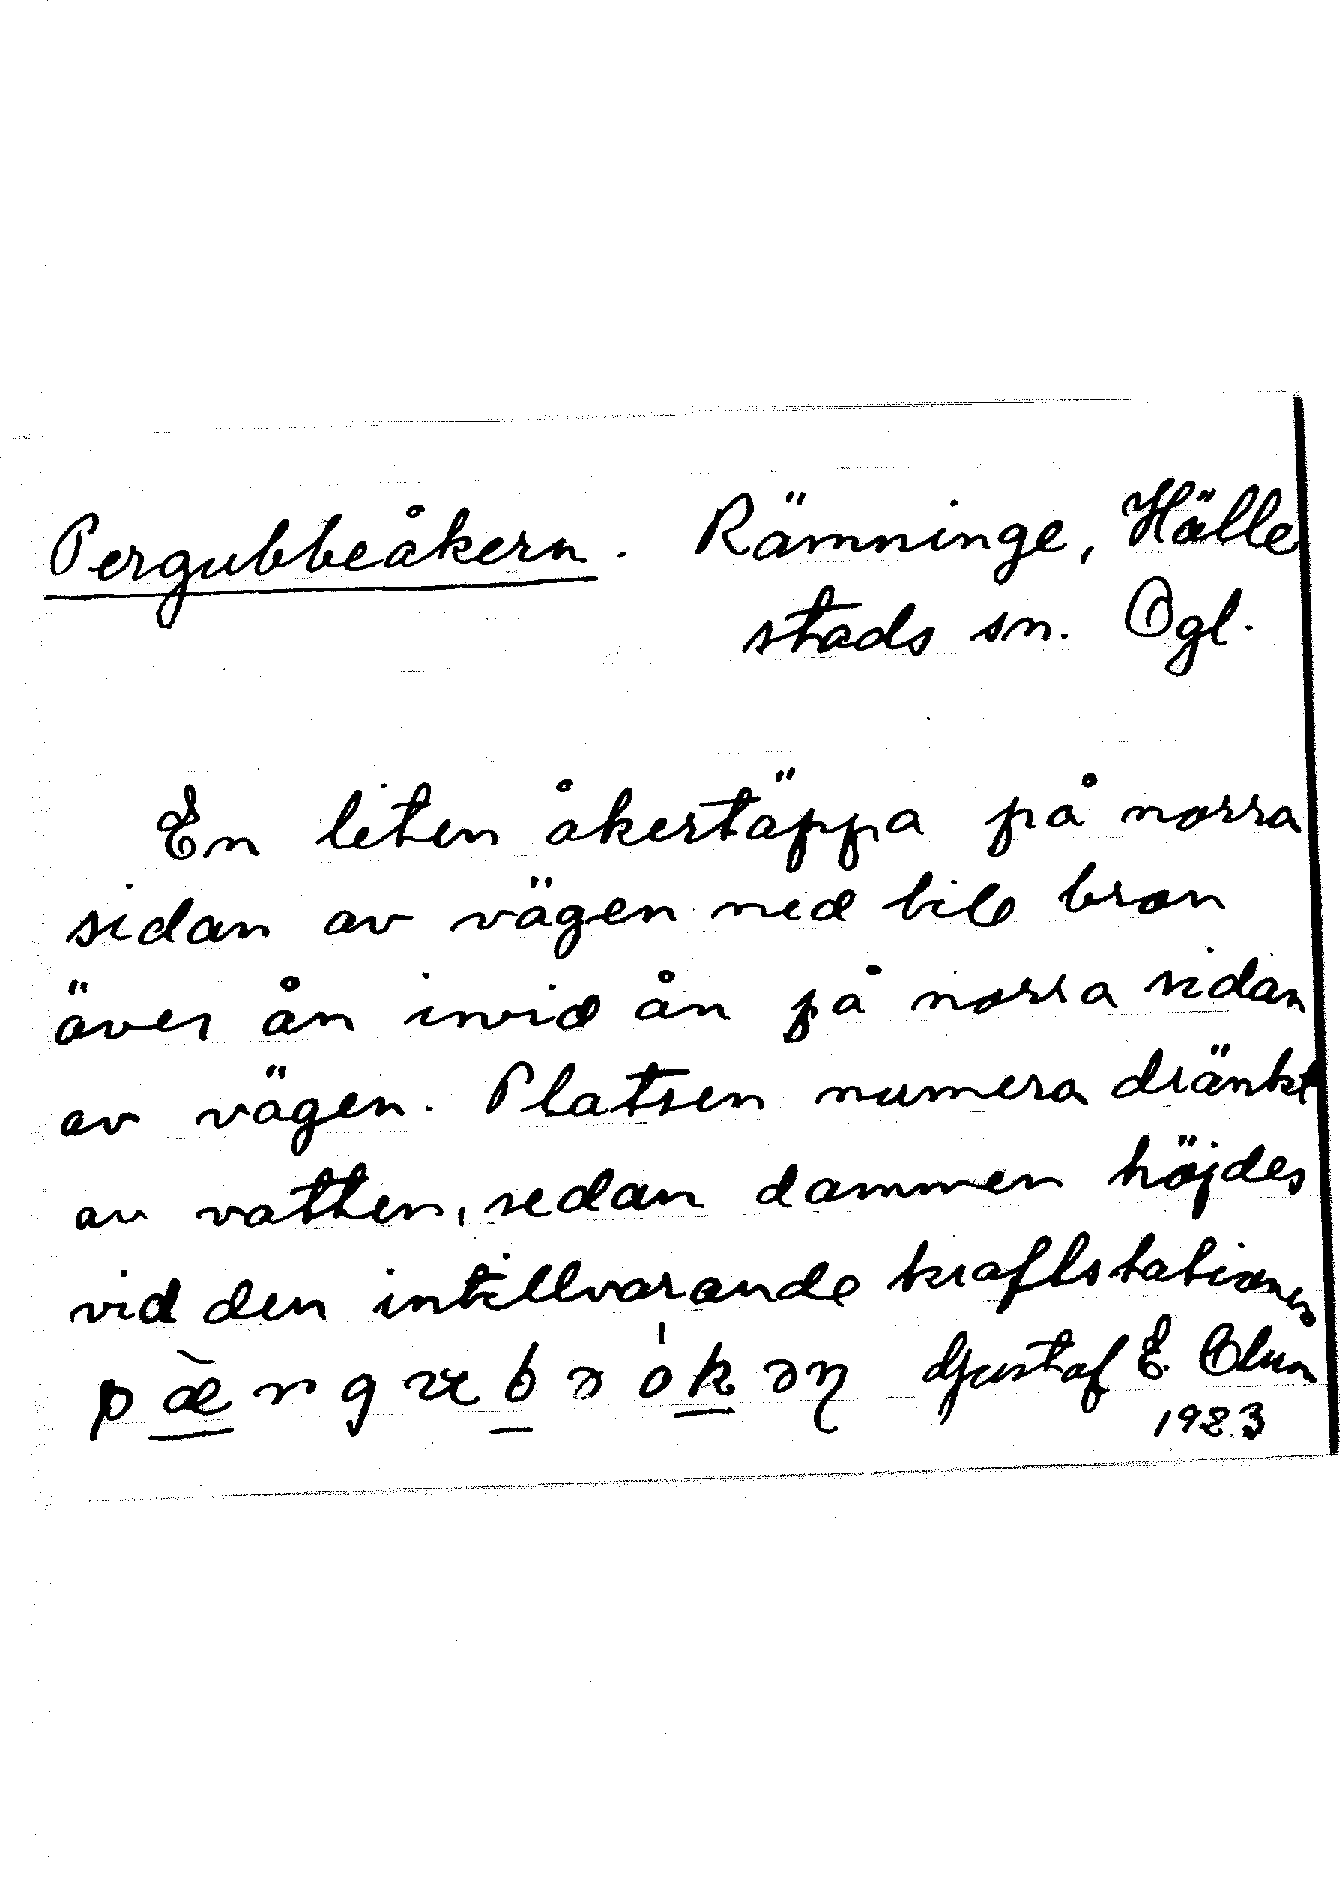 Pergubbeåkern. Rämninge, Hälle
stads sn. Ögl.
En liten åkertäppa på norra
sidan av vägen ned till bron
över ån invid ån på norra sidan
av vägen. Platsen numera dränkt
av vatten, sedan dammen höjdes
vid den intillvarande kraftstationen
Gustaf E. Olun
1923